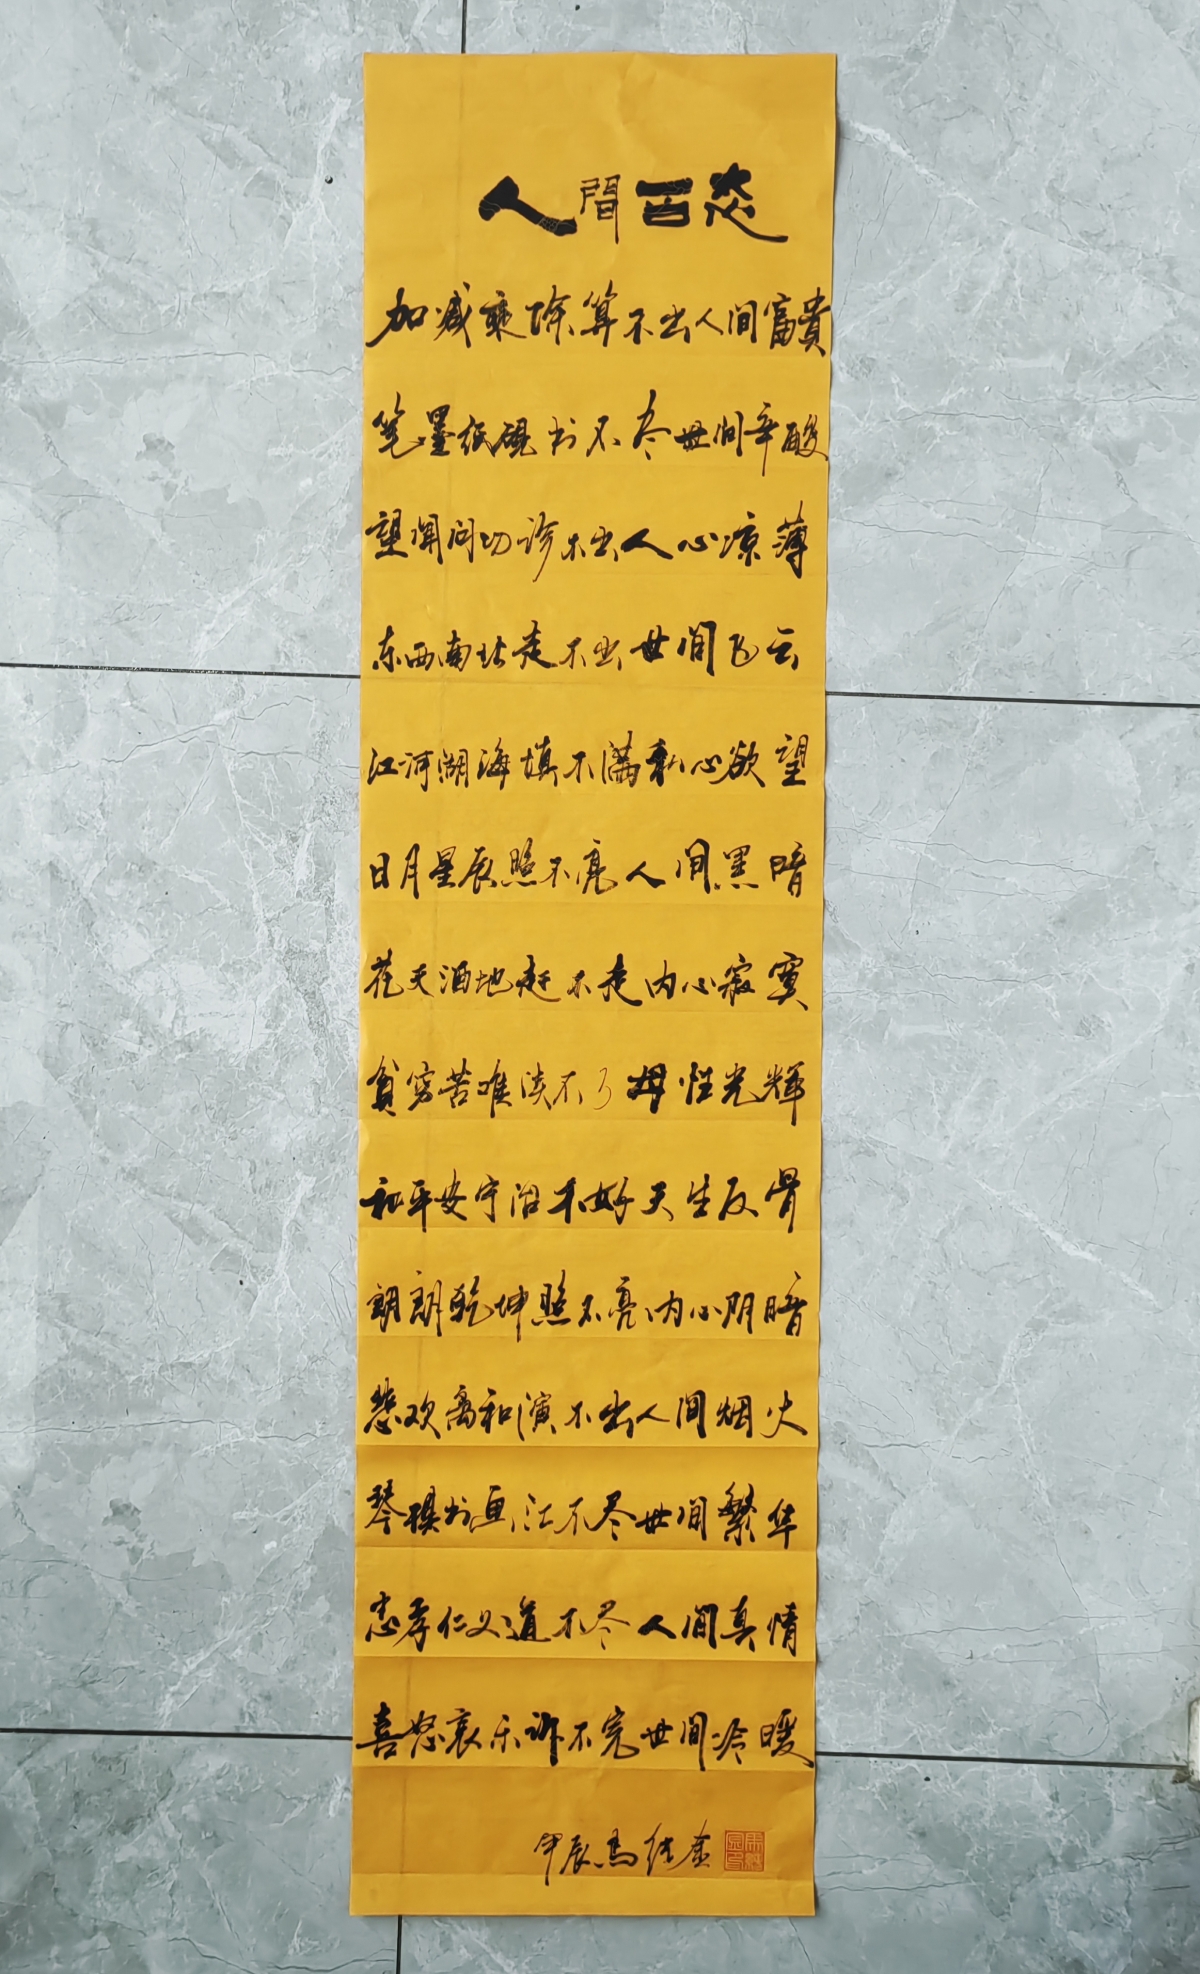 人間百态
加减乘除算不出人间富貴
笔墨纸砚书不尽世间辛酸
望闻问切诊不出人心凉薄
东西南北走不出世间飞云
江河湖海填不满私心欲望
日月星辰照不亮人间黑暗
花天酒地赶不走内心寂寞
貧穷苦难淡不了母性光辉
和平安宁治不好天生反骨
朗朗乾坤照不亮内心阴暗
悲欢离和演不出人间烟火
琴棋书画记不尽世间繁华
忠孝仁义道不尽人间真情
喜怒哀乐诉不完世间冷暖
甲辰馬继金